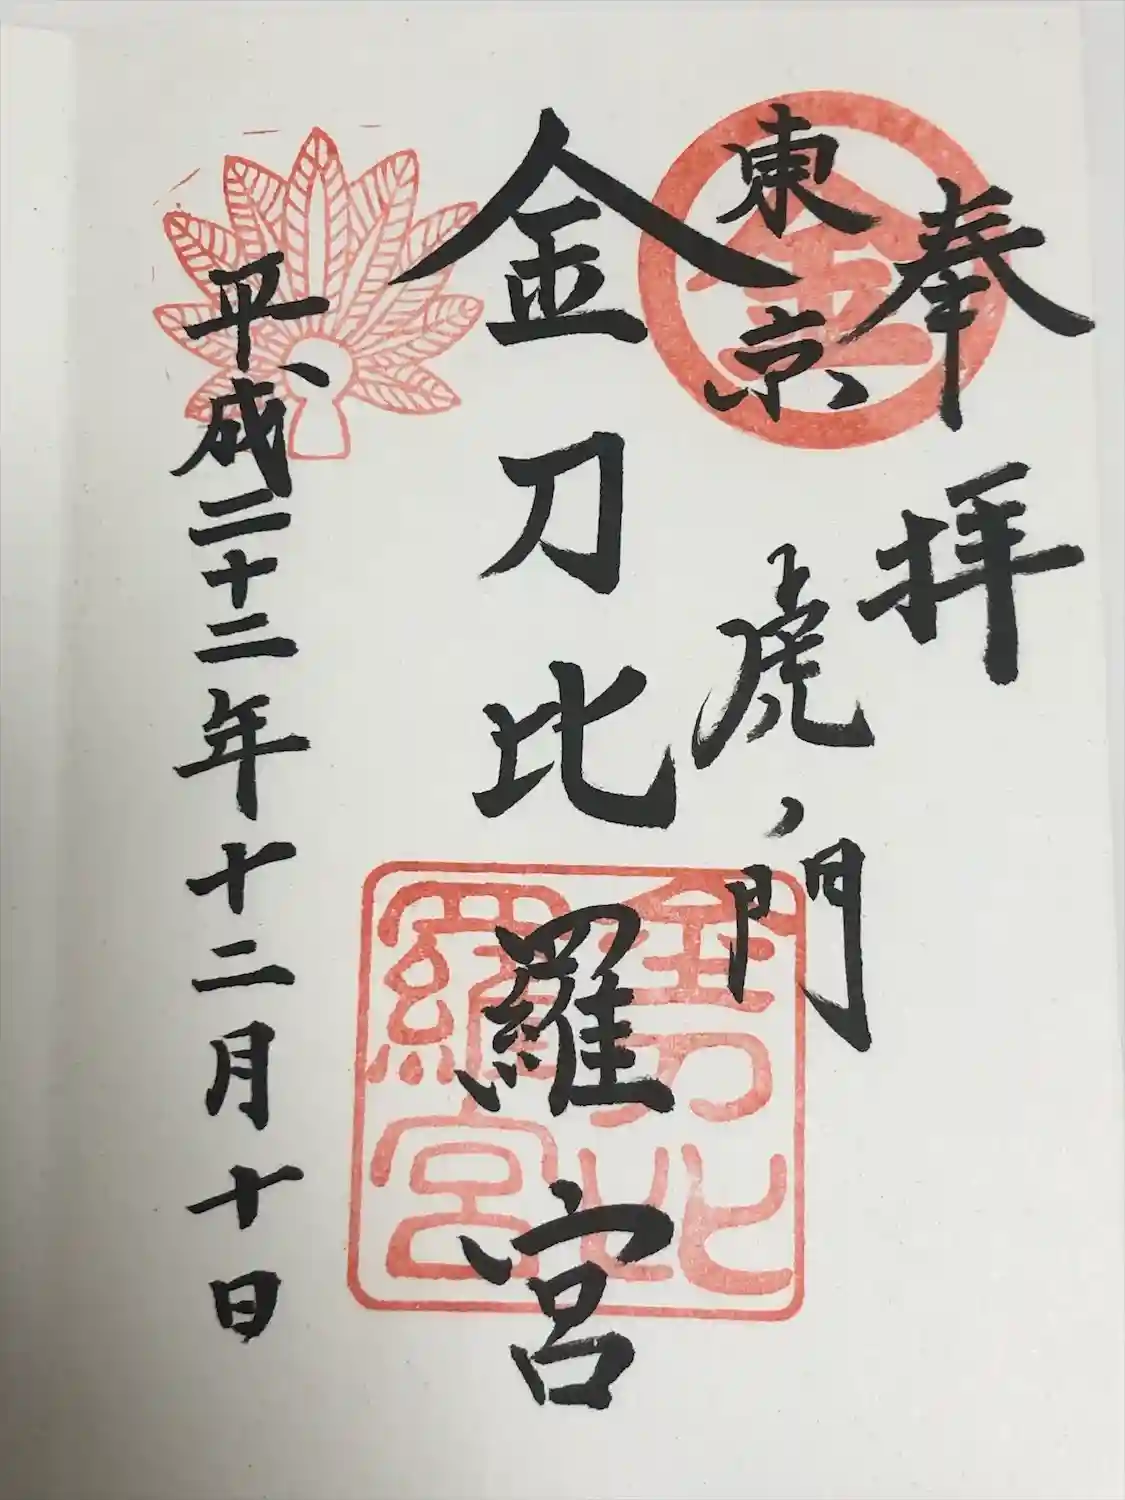 奉拝
東京虎ノ門
金刀比羅宮
平成二十二年十二月十日
金
金刀比羅宮